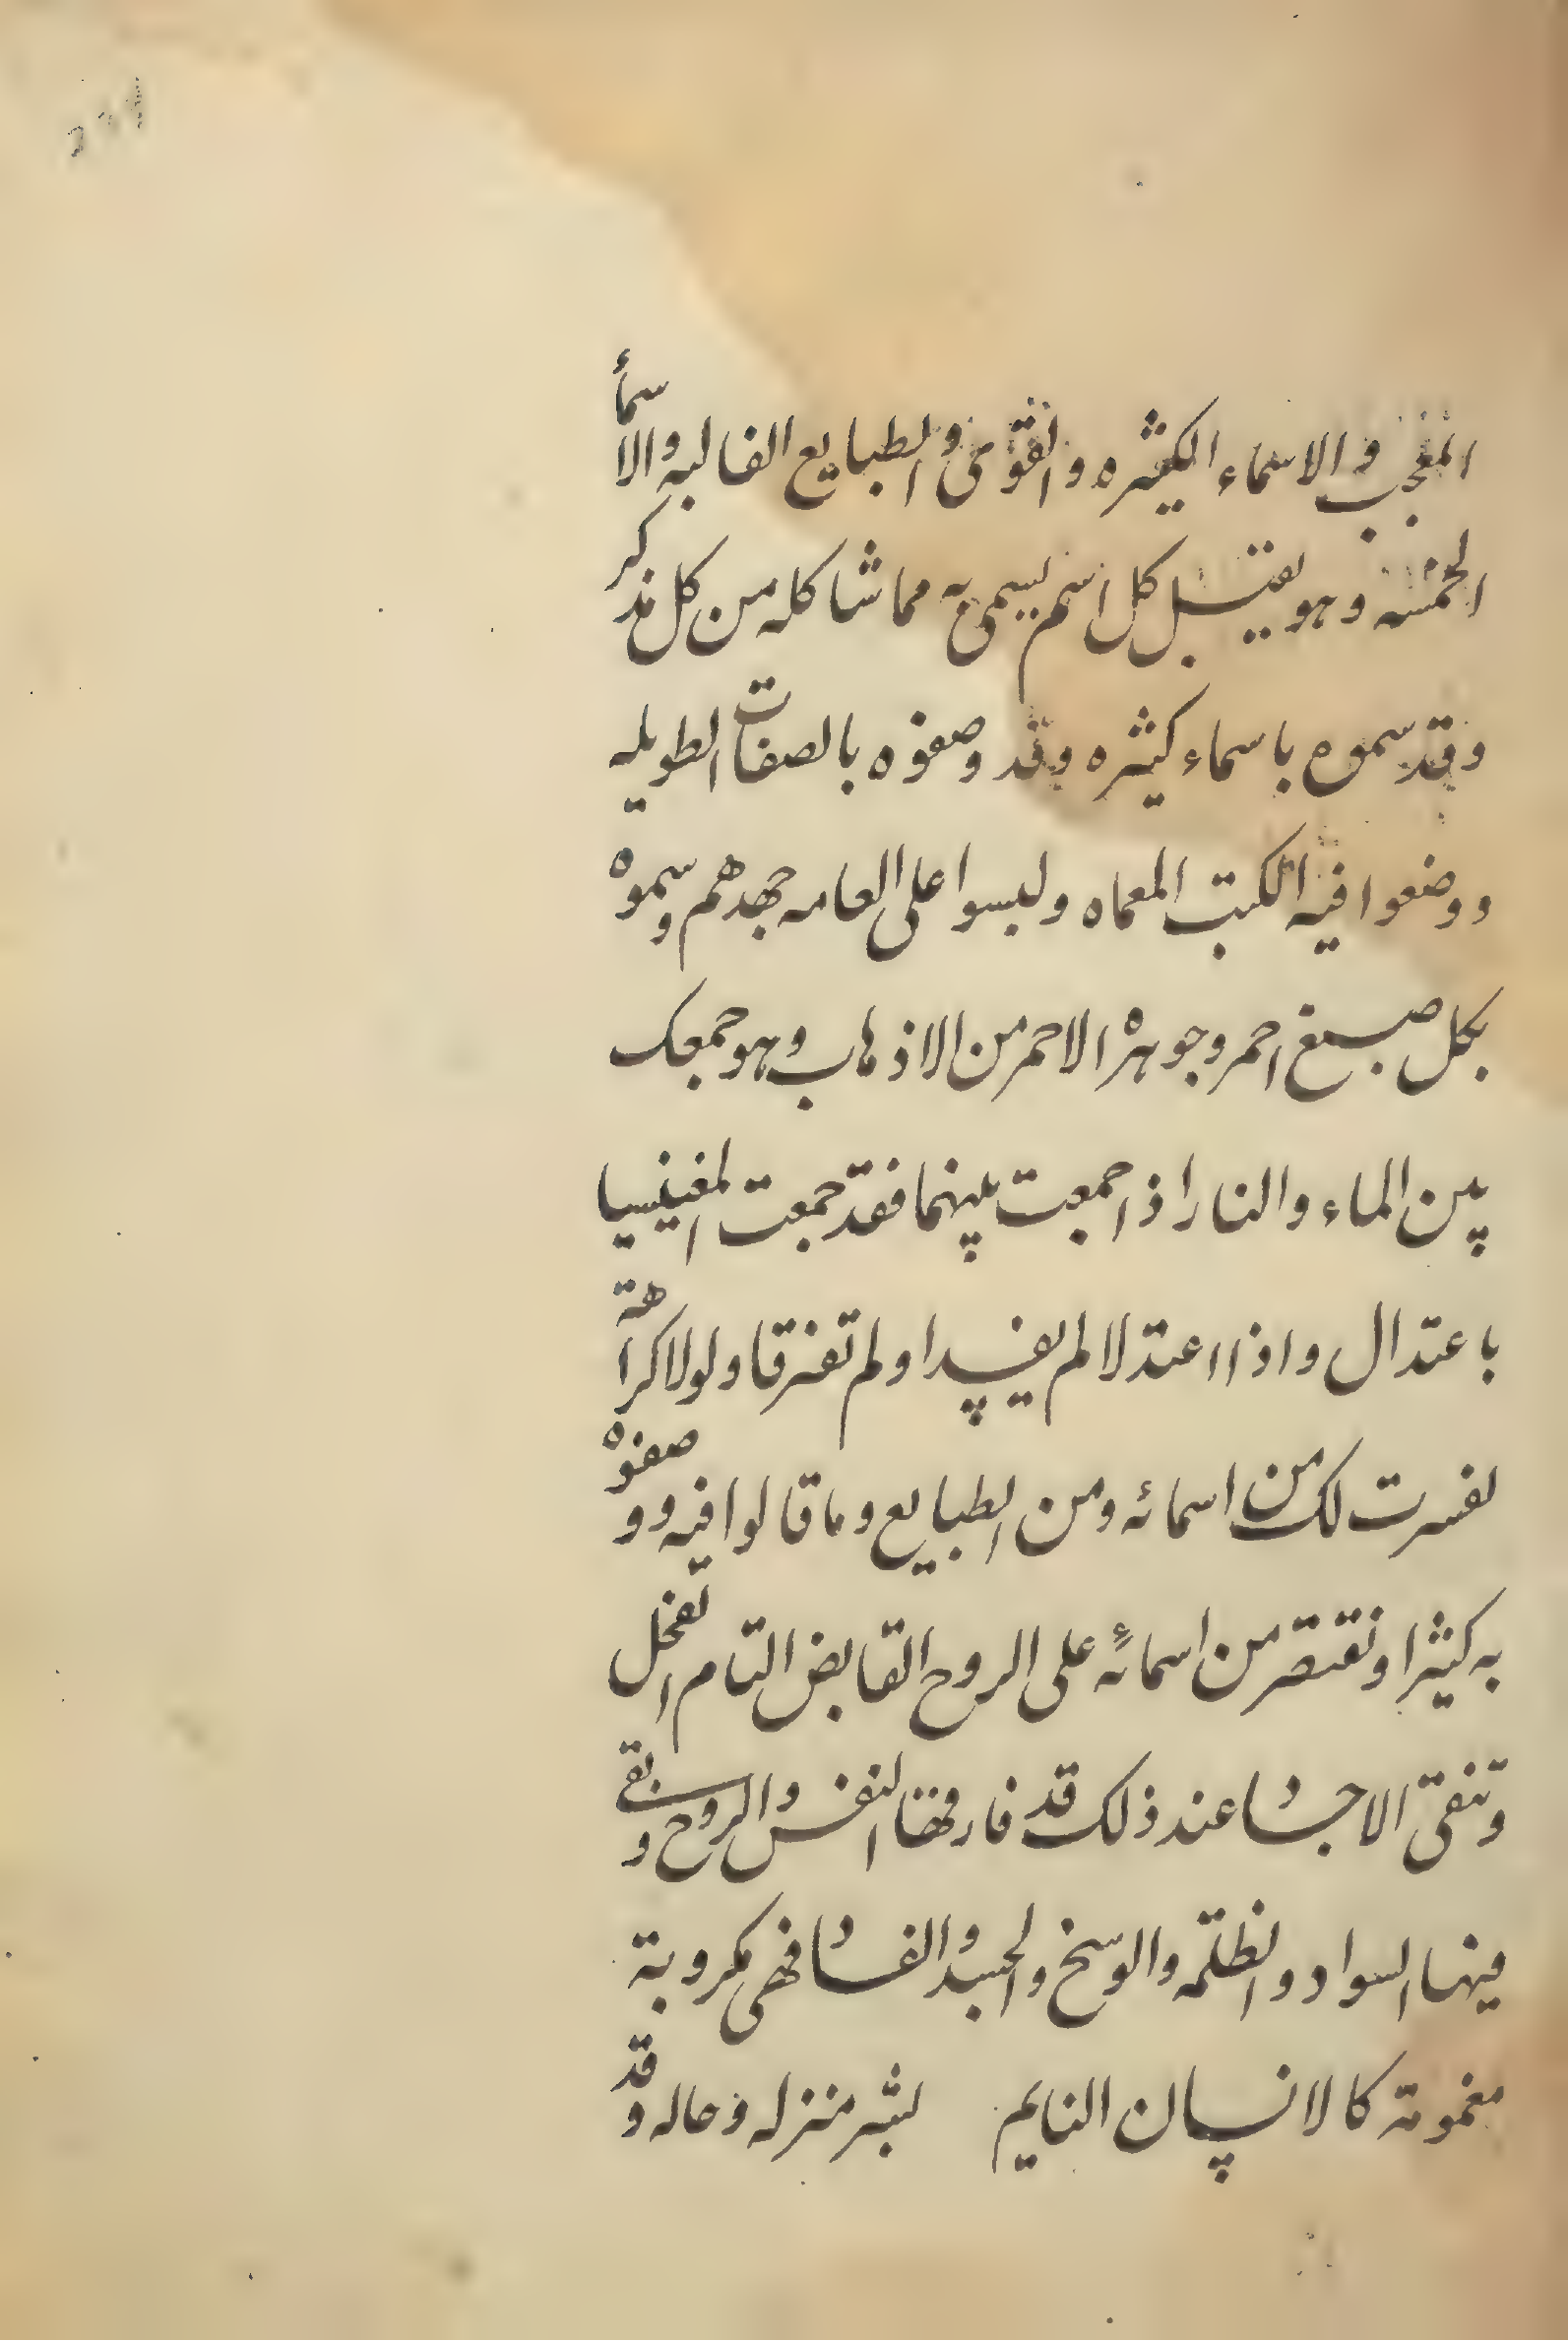 المعجب والاسماء الكثيره والقوى والطبايع الغالبه والاسمأ
الخمسه وهو يقبل كل اسم يسمى به مما شاكله من كل مذكر
وقد سموه باسماء كثيره وقد وصفوه بالصفات الطويله
ووضعوا فيه الكتب المعماه ولبسوا على العامه جهدهم وسموه
بكل صبغ احمر وجوهره الاحمر من الاذهاب وهو جمعك
بين الماء والنار اذا جمعت بينهما فقد جمعت المغنيسيا
باعتدال واذا اعتدلا لم يفسدا ولم تفترقا ولولا كراهة
لفسرت لك من اسمائه ومن الطبايع وما قالوا فيه ووصفوه
به كثيرا ونقتصر من اسمائه على الروح القابض التام
وتنقى الاجساد عند ذلك قد فارقها النفس والروح وبقى
فيها السواد والظلمه والوسخ والجسد والفساد فهى مكروبة
مغمومة كالانسان النايم بشر منزله وحاله وقد